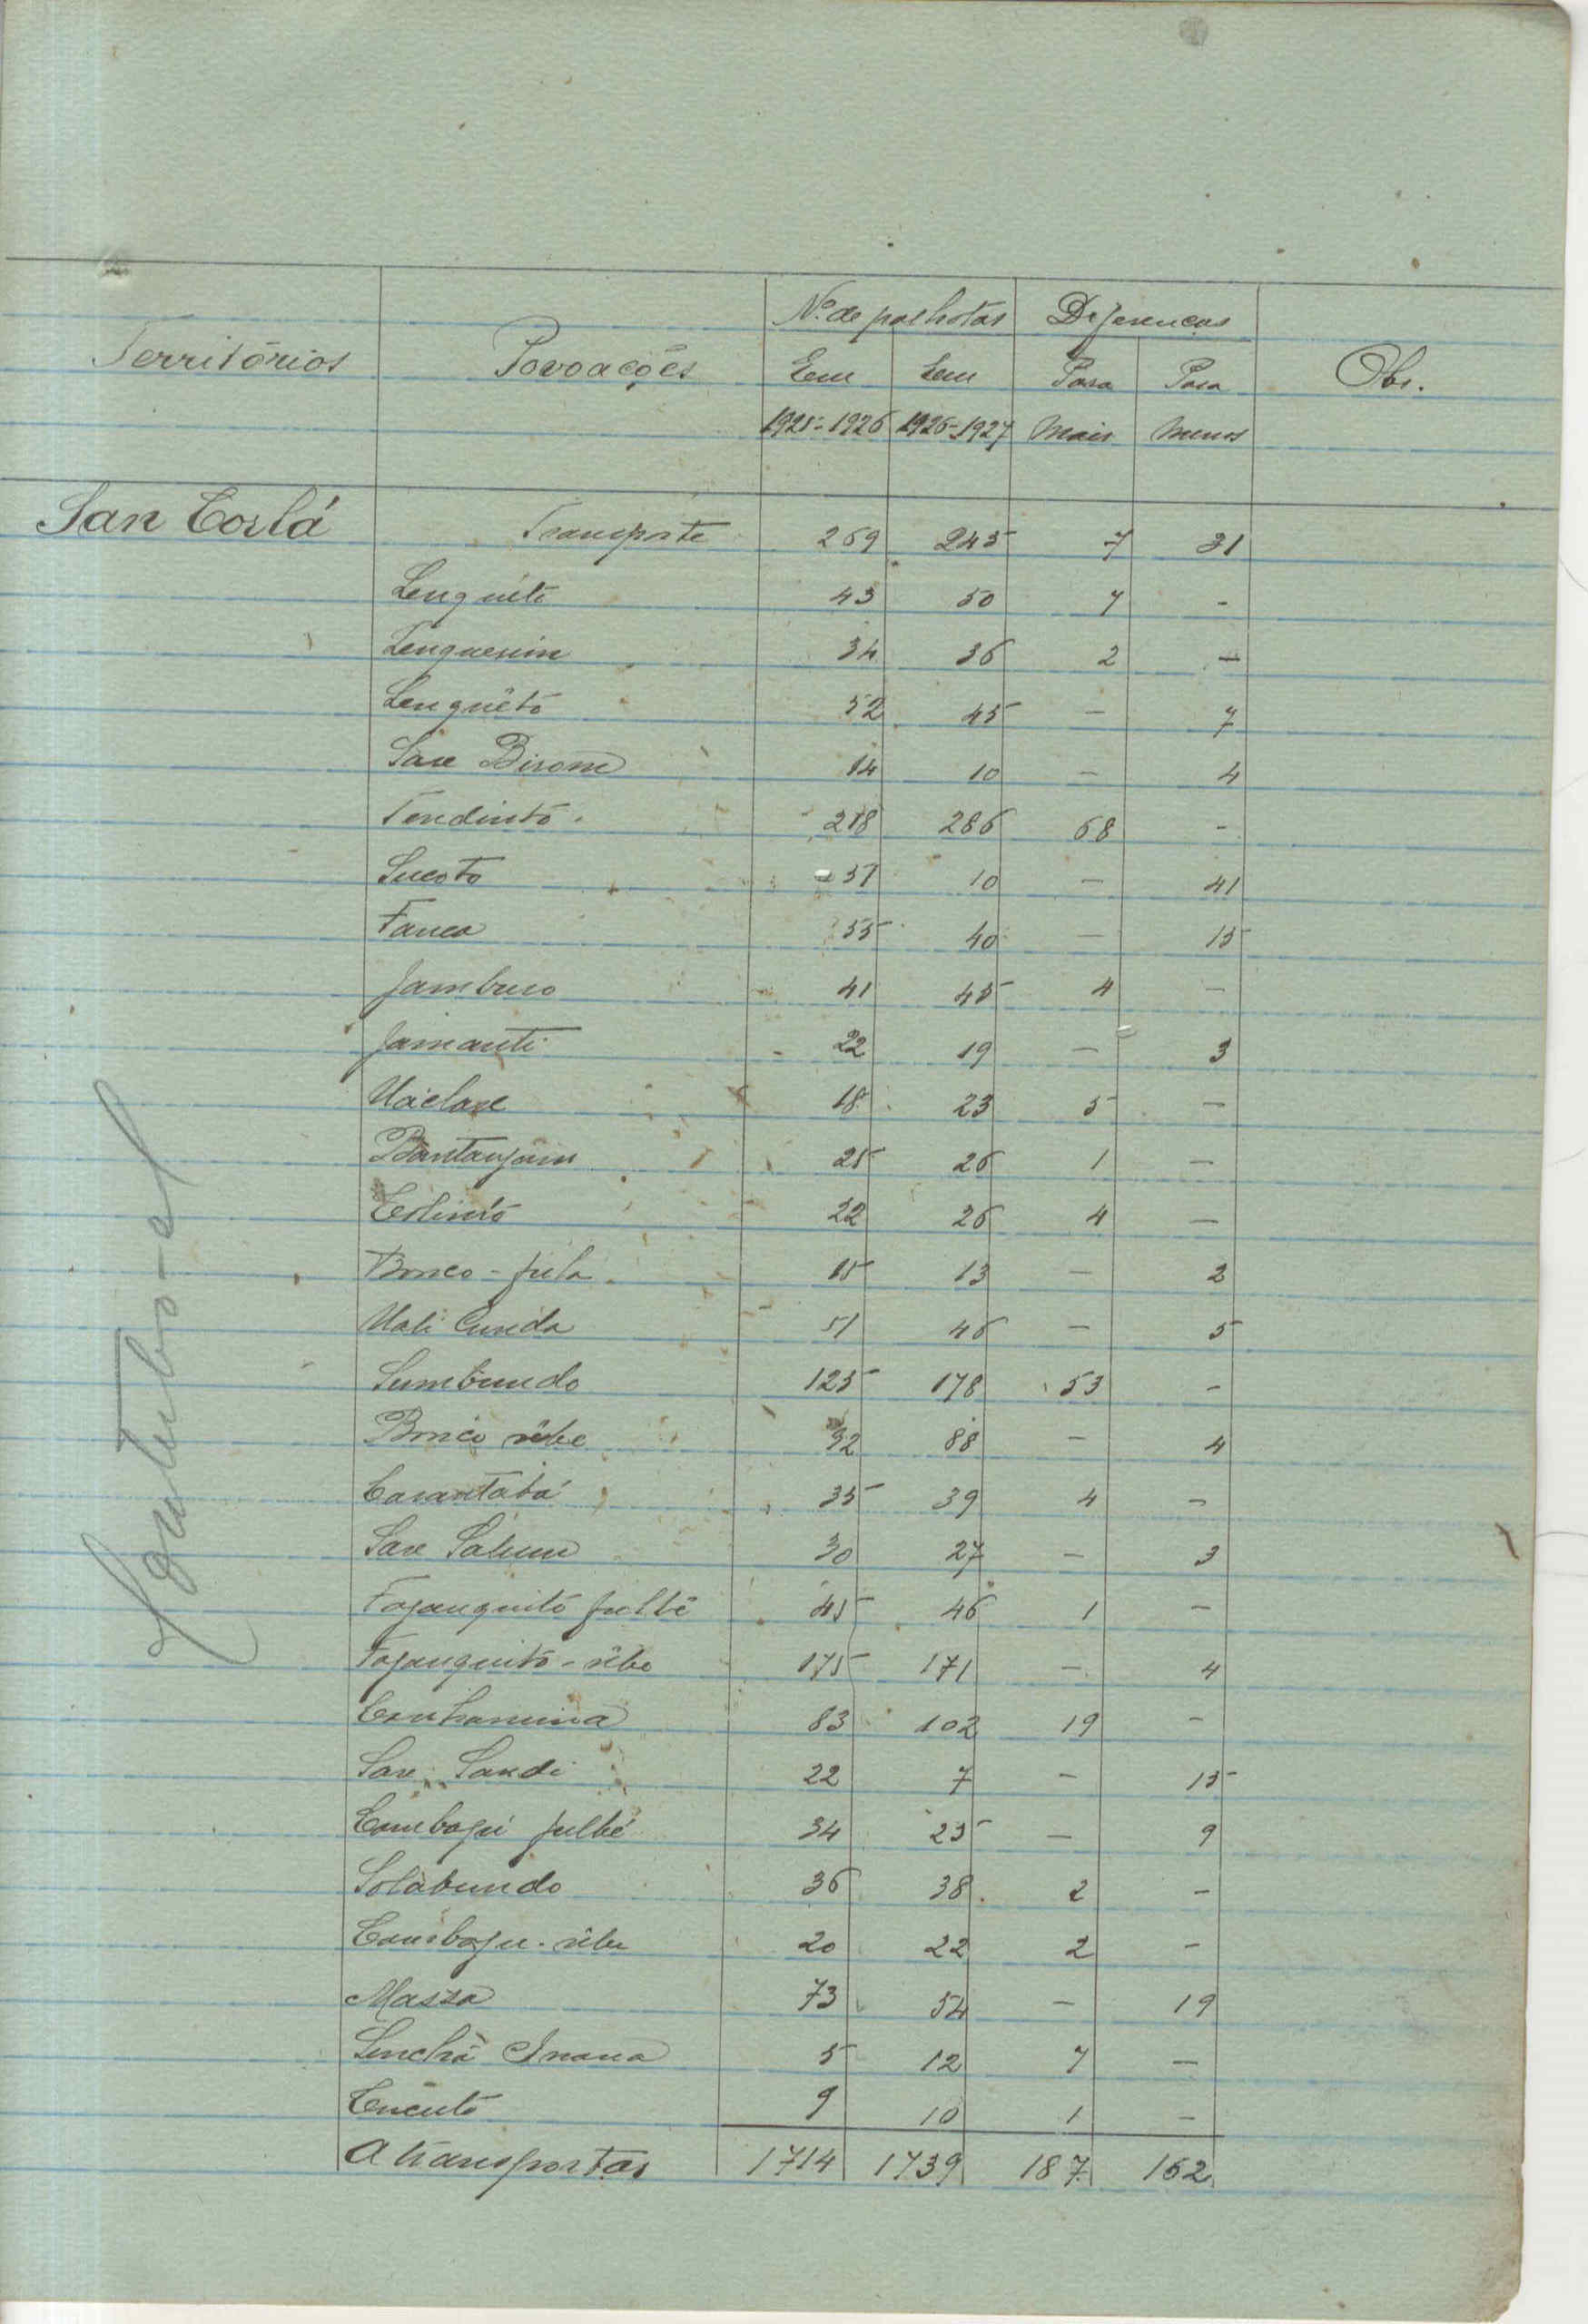 Territórios Povoações Nº de palhotas Diferenças Obs.
Em Em Para Para
1925-1926 1926-1927 Mais Menos
San Corlá Transporte 269 245 7 31
Lenguéti 43 50 7 -
Lenguerim 34 36 2 -
Lenguêtó 52 45 - 7
Sare Birom 14 10 - 4
Tendintó 218 286 68 -
Sucoto 51 10 - 41
Fanca 55 40 - 15
Jambuco 41 45 4 -
Jamanti 22 19 - 3
Uáclare 18 23 5 -
Bantanjam 25 26 1 -
22 26 4 -
Bonco - fula 15 13 - 2
Uali Cunda 51 46 - 5
Sumbundo 125 178 53 -
Bonco nibe 92 88 - 4
Carantabá 35 39 4 -
Sare Salium 30 27 - 3
Fajanquitó fulbé 45 46 1 -
Fajanquitó - nibe 175 171 - 4
Canhamina 83 102 19 -
Sare Sandi 22 7 - 15
Cambajú fulbé 34 25 - 9
Solabundo 36 38 2 -
Cambaju - nibe 20 22 2 -
Massa 73 54 - 19
Sinchã 5 12 7 -
9 10 1 -
A transportar 1714 1739 187 162